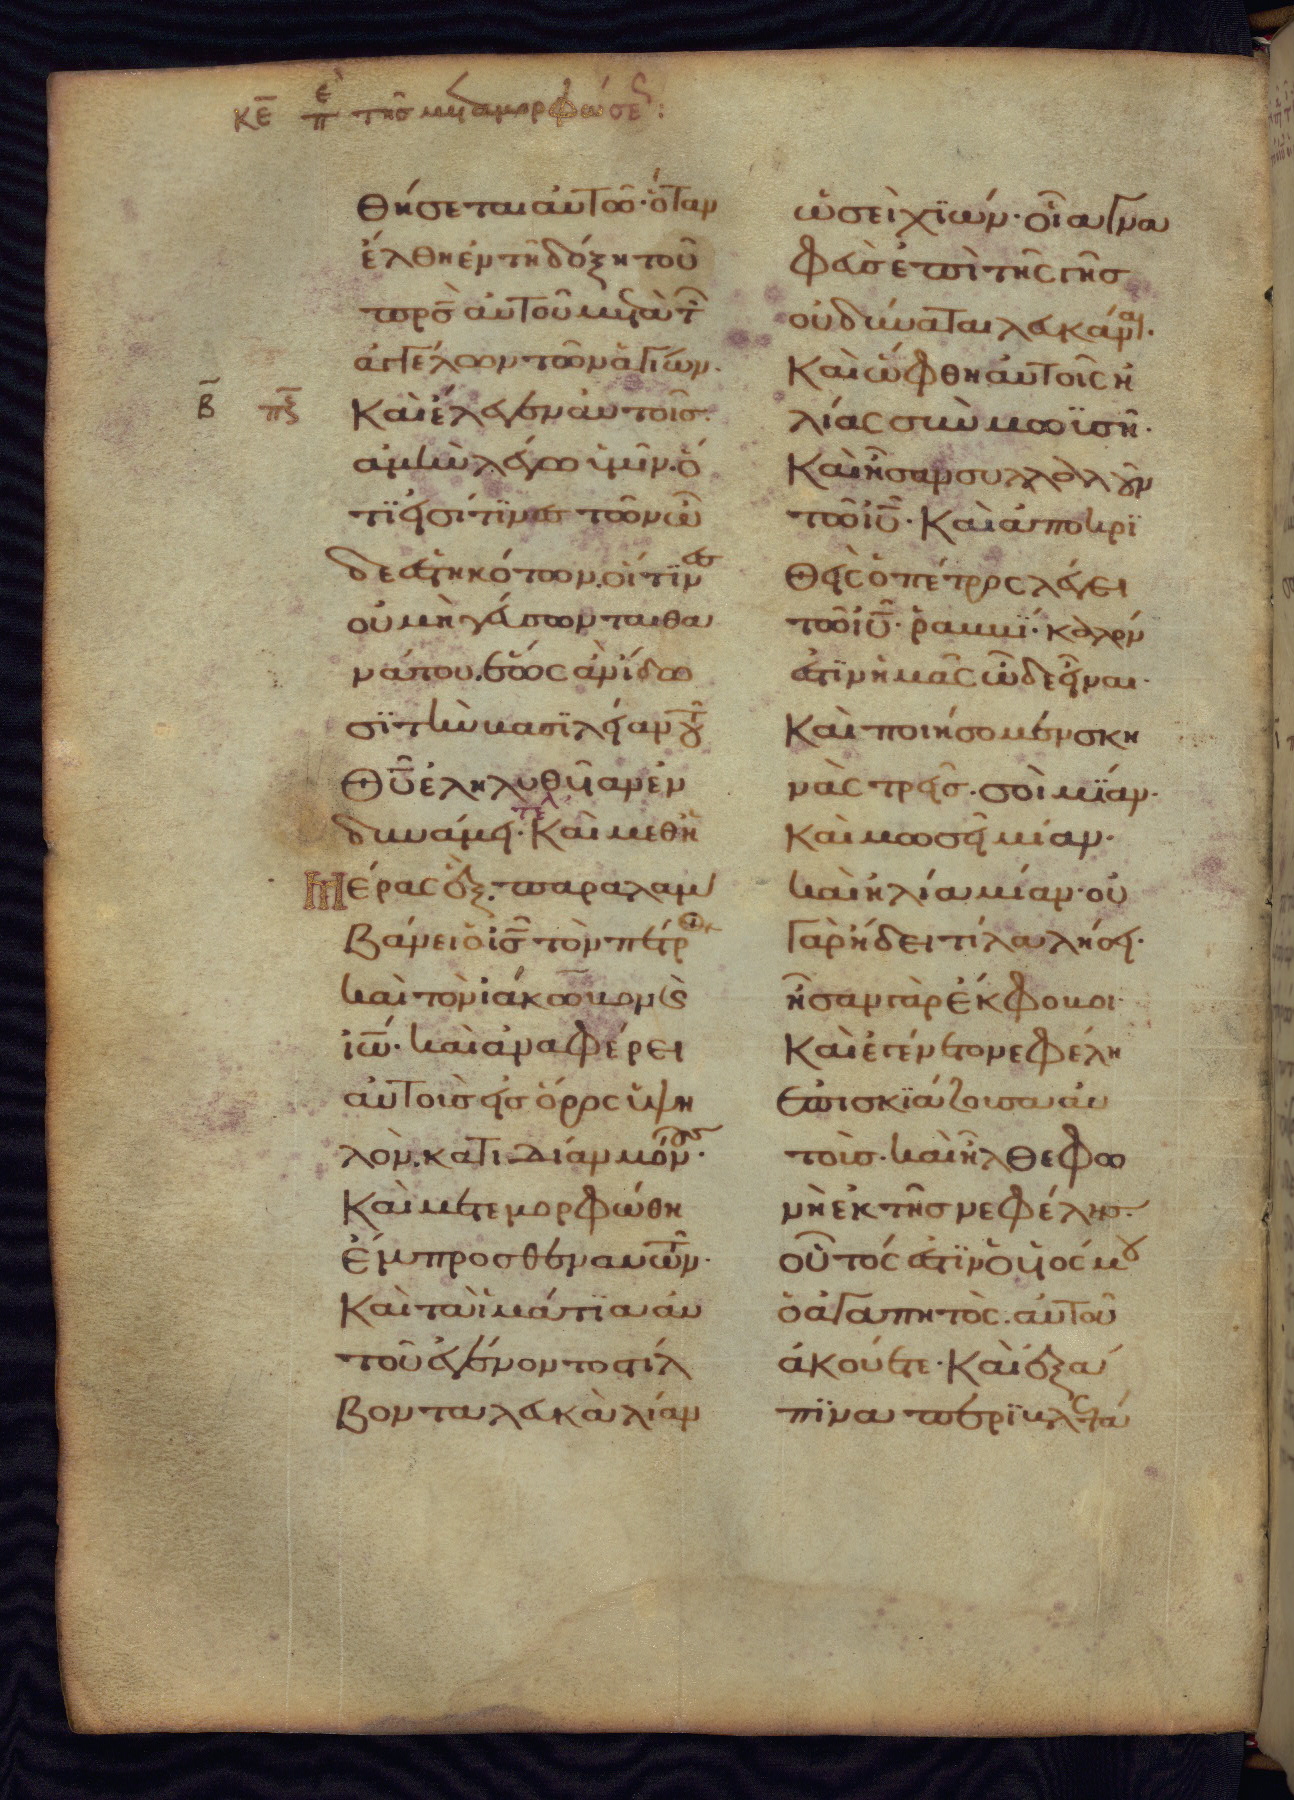 κε ε π τῆς μεταμορφώσε:
θήσεται αὐτῶ· ὅταν
ἔλθη ἐν τῆ δόξη τοῦ
πρς αὐτοῦ μετὰ τ
ἀγγέλων τῶν ἁγίων·
Β πξ Καὶ ἔλεγεν αὐτοῖς·
ἀμὴν λέγω ὑμῖν· ὅ
τϊ εἰσί τϊνες τῶν ὧ
δε ἑστηκότων. οἵτϊνες
οὐ μὴ γεύσωνται θα
νάτου. ἕως ἂν ἴδω
σϊ τὴν βασϊλείαν τ
Θῦ ἐληλυθυῖαν ἐν
δυνάμει· τελ Καὶ μεθ ἡ
μέρας ἓξ. παραλαμ
βάνει ὁ ις τὸν πέτρον
καὶ τὸν ἰάκωβον κς
ἰω· καὶ ἀναφέρει
αὐτοὺς εἰς ὄρος ὑψη
λὸν. κατ ιδίαν μόνους·
Καὶ μετεμορφώθη
ἔμπροσθεν αυτῶν·
Καὶ τὰ ἱμάτϊα αὐ
τοῦ ἐγένοντο στίλ
βοντα λευκὰ λίαν
ὡσεὶ χϊών· οἷα γνα
φεὺς ἐπὶ τῆς γῆς
οὐ δύναται λευκάναι·
Καὶ ὤφθη αὐτοῖς ἡ
λίας σὺν μωϊσῆ·
Καὶ ἦσαν συλλαλοῦν
τῶ ιῦ· Καὶ ἀποκρϊ
Θεὶς ὁ πέτρος λέγει
τῶ ιῦ· ῥαββϊ· καλόν
ἐστϊν ἡμᾶς ὧδε εἶναι·
Καὶ ποιήσομεν σκη
νὰς τρεῖς· σοὶ μϊαν·
Καὶ μωσεῖ μίαν·
καὶ ἠλία μίαν· οὐ
γὰρ ἤδει τί λαλήσει·
ἦσαν γὰρ ἔκφοβοι·
Καὶ ἐγένετο νεφέλη
ἐπισκϊάζουσα αὐ
τοῖς· καὶ ἦλθε φω
νὴ ἐκ τῆς νεφέλης·
οὗτός ἐστϊν ὁ υἱός μου
ὁ ἀγαπητὸς· αὐτοῦ
ἀκούετε· Καὶ ἐξά
πϊνα περϊβλεψά